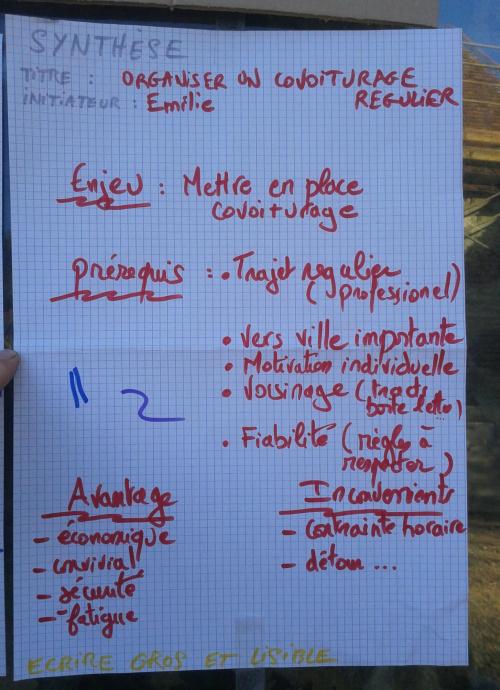 SYNTHÈSE
TITRE : ORGANISER UN COVOITURAGE
REGULIER
INITIATEUR : Emilie
Enjeu : Mettre en place
covoiturage
Prérequis : • Trajet regulier
(professionel)
• Vers ville importante
• Motivation individuelle
• Voisinage (tracts
boite lettre)
• Fiabilité (règles à
respecter)
Avantage
- économique
- convivial
- sécurité
- - fatigue
Inconvenients
- contrainte horaire
- détour ...
ECRIRE GROS ET LISIBLE